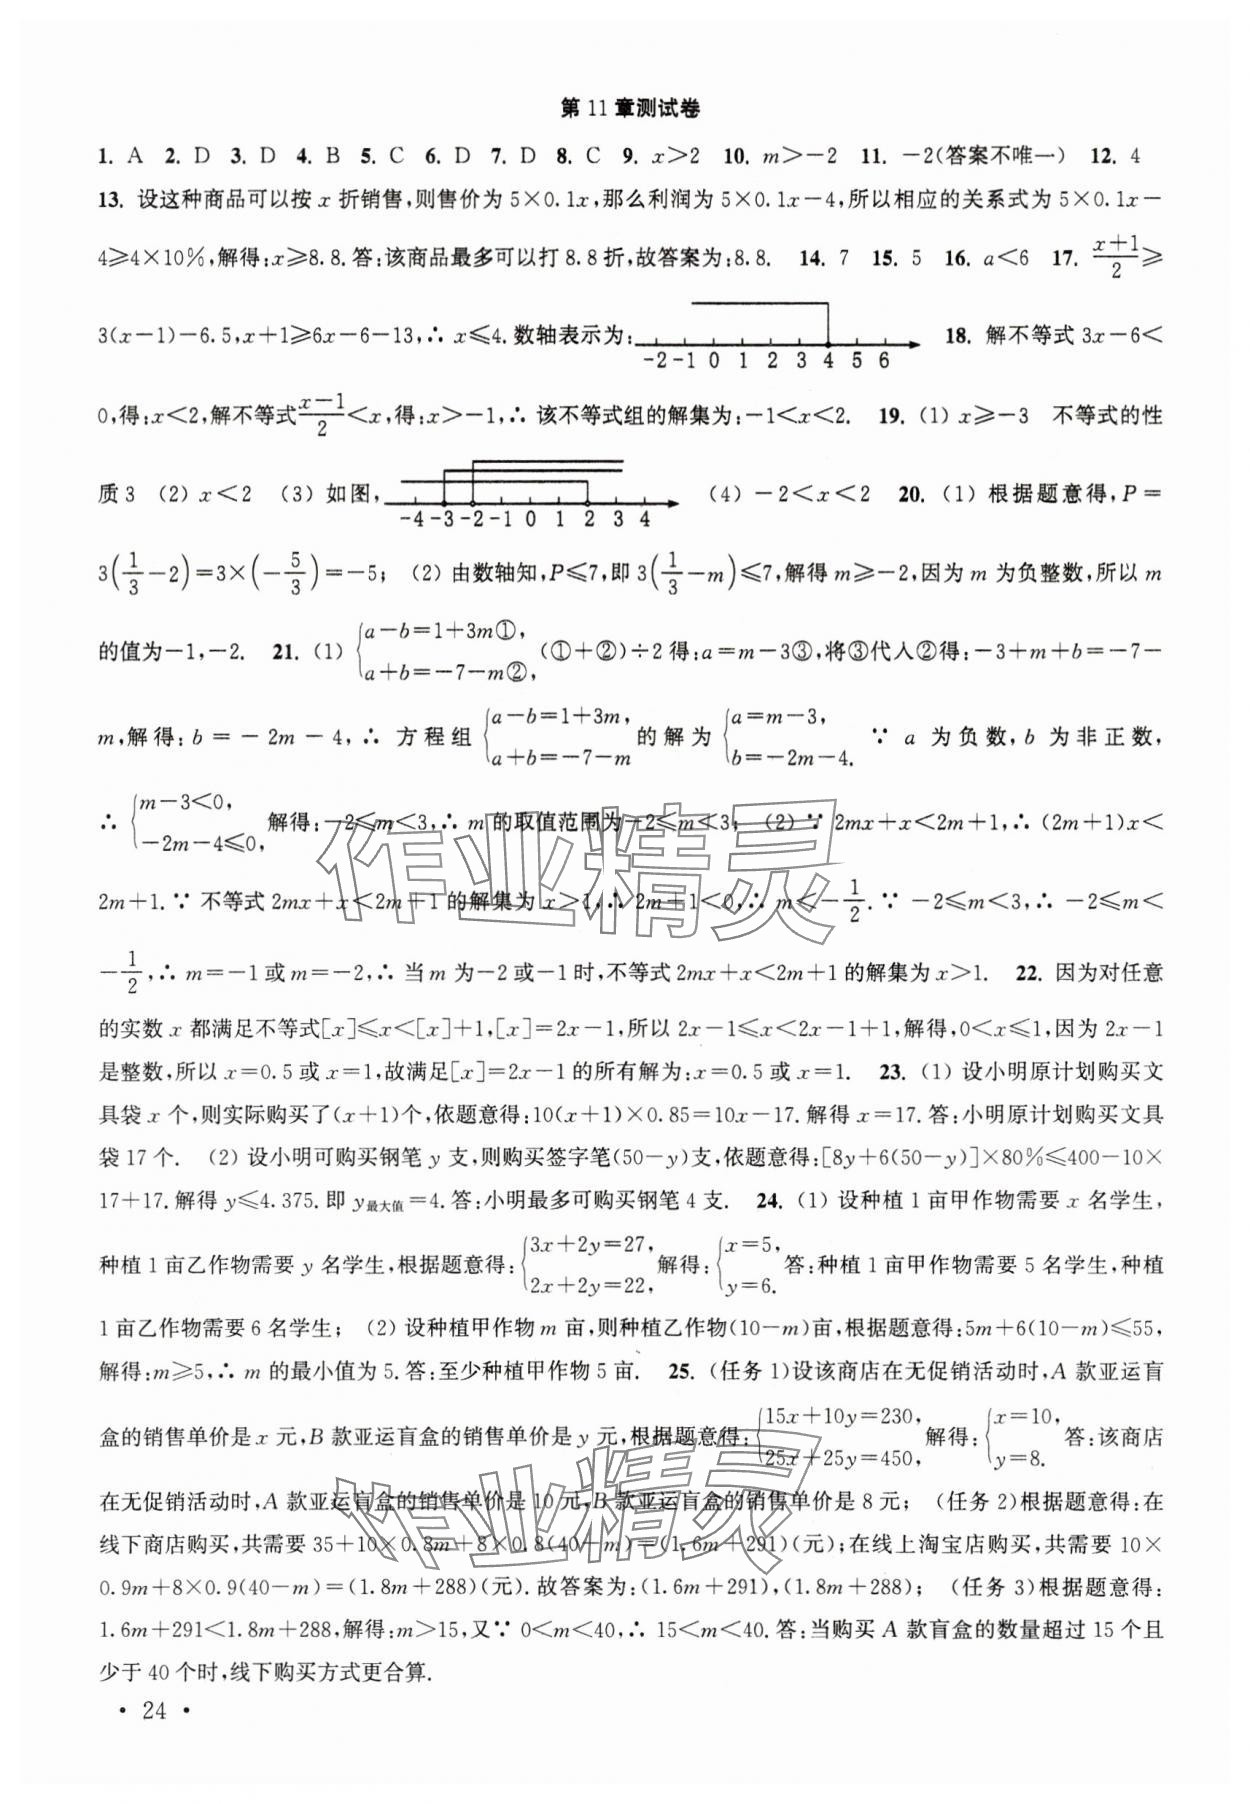 第 11 章测试卷
1. A 2. D 3. D 4. B 5. C 6. D 7. D 8. C 9. x＞2 10. m＞－2 11. －2(答案不唯一) 12. 4
13. 设这种商品可以按 x 折销售,则售价为 5×0.1x,那么利润为 5×0.1x－4,所以相应的关系式为 5×0.1x－
4≥4×10%,解得:x≥8.8.答:该商品最多可以打 8.8 折,故答案为:8.8. 14. 7 15. 5 16. a＜6 17. (x＋1)/2≥
3(x－1)－6.5,x＋1≥6x－6－13,∴ x≤4.数轴表示为: -2 -1 0 1 2 3 4 5 6 18. 解不等式 3x－6＜
0,得:x＜2,解不等式(x－1)/2＜x,得:x＞－1,∴ 该不等式组的解集为:－1＜x＜2. 19. (1) x≥－3 不等式的性
质 3 (2) x＜2 (3) 如图, -4 -3 -2 -1 0 1 2 3 4 (4) －2＜x＜2 20. (1) 根据题意得,P＝
3(1/3－2)＝3×(－5/3)＝－5; (2) 由数轴知,P≤7,即 3(1/3－m)≤7,解得 m≥－2,因为 m 为负整数,所以 m
的值为－1,－2. 21. (1) {a－b＝1＋3m①, a＋b＝－7－m②, (①＋②)÷2 得:a＝m－3③,将③代人②得:－3＋m＋b＝－7－
m,解得: b ＝－2m－4,∴ 方程组 {a－b＝1＋3m, a＋b＝－7－m 的解为 {a＝m－3, b＝－2m－4. ∵ a 为负数,b 为非正数,
∴ {m－3＜0, －2m－4≤0, 解得:－2≤m＜3,∴ m 的取值范围为－2≤m＜3; (2) ∵ 2mx＋x＜2m＋1,∴ (2m＋1)x＜
2m＋1.∵ 不等式 2mx＋x＜2m＋1 的解集为 x＞1,∴ 2m＋1＜0,∴ m＜－1/2.∵ －2≤m＜3,∴ －2≤m＜
－1/2,∴ m＝－1 或 m＝－2,∴ 当 m 为－2 或－1 时,不等式 2mx＋x＜2m＋1 的解集为 x＞1. 22. 因为对任意
的实数 x 都满足不等式[x]≤x＜[x]＋1,[x]＝2x－1,所以 2x－1≤x＜2x－1＋1,解得,0＜x≤1,因为 2x－1
是整数,所以 x＝0.5 或 x＝1,故满足[x]＝2x－1 的所有解为:x＝0.5 或 x＝1. 23. (1) 设小明原计划购买文
具袋 x 个,则实际购买了(x＋1)个,依题意得:10(x＋1)×0.85＝10x－17.解得 x＝17.答:小明原计划购买文具
袋 17 个. (2) 设小明可购买钢笔 y 支,则购买签字笔(50－y)支,依题意得:[8y＋6(50－y)]×80%≤400－10×
17＋17.解得 y≤4.375.即 y最大值＝4.答:小明最多可购买钢笔 4 支. 24. (1) 设种植 1 亩甲作物需要 x 名学生,
种植 1 亩乙作物需要 y 名学生,根据题意得:{3x＋2y＝27, 2x＋2y＝22, 解得:{x＝5, y＝6. 答:种植 1 亩甲作物需要 5 名学生,种植
1 亩乙作物需要 6 名学生; (2) 设种植甲作物 m 亩,则种植乙作物(10－m)亩,根据题意得:5m＋6(10－m)≤55,
解得:m≥5,∴ m 的最小值为 5.答:至少种植甲作物 5 亩. 25. (任务 1)设该商店在无促销活动时,A 款亚运盲
盒的销售单价是 x 元,B 款亚运盲盒的销售单价是 y 元,根据题意得:{15x＋10y＝230, 25x＋25y＝450, 解得:{x＝10, y＝8. 答:该商店
在无促销活动时,A 款亚运盲盒的销售单价是 10 元,B 款亚运盲盒的销售单价是 8 元; (任务 2)根据题意得:在
线下商店购买,共需要 35＋10×0.8m＋8×0.8(40－m)＝(1.6m＋291)(元);在线上淘宝店购买,共需要 10×
0.9m＋8×0.9(40－m)＝(1.8m＋288)(元).故答案为:(1.6m＋291),(1.8m＋288); (任务 3)根据题意得:
1.6m＋291＜1.8m＋288,解得:m＞15,又∵ 0＜m＜40,∴ 15＜m＜40.答:当购买 A 款盲盒的数量超过 15 个且
少于 40 个时,线下购买方式更合算.
• 24 •
作业精灵
作业精灵